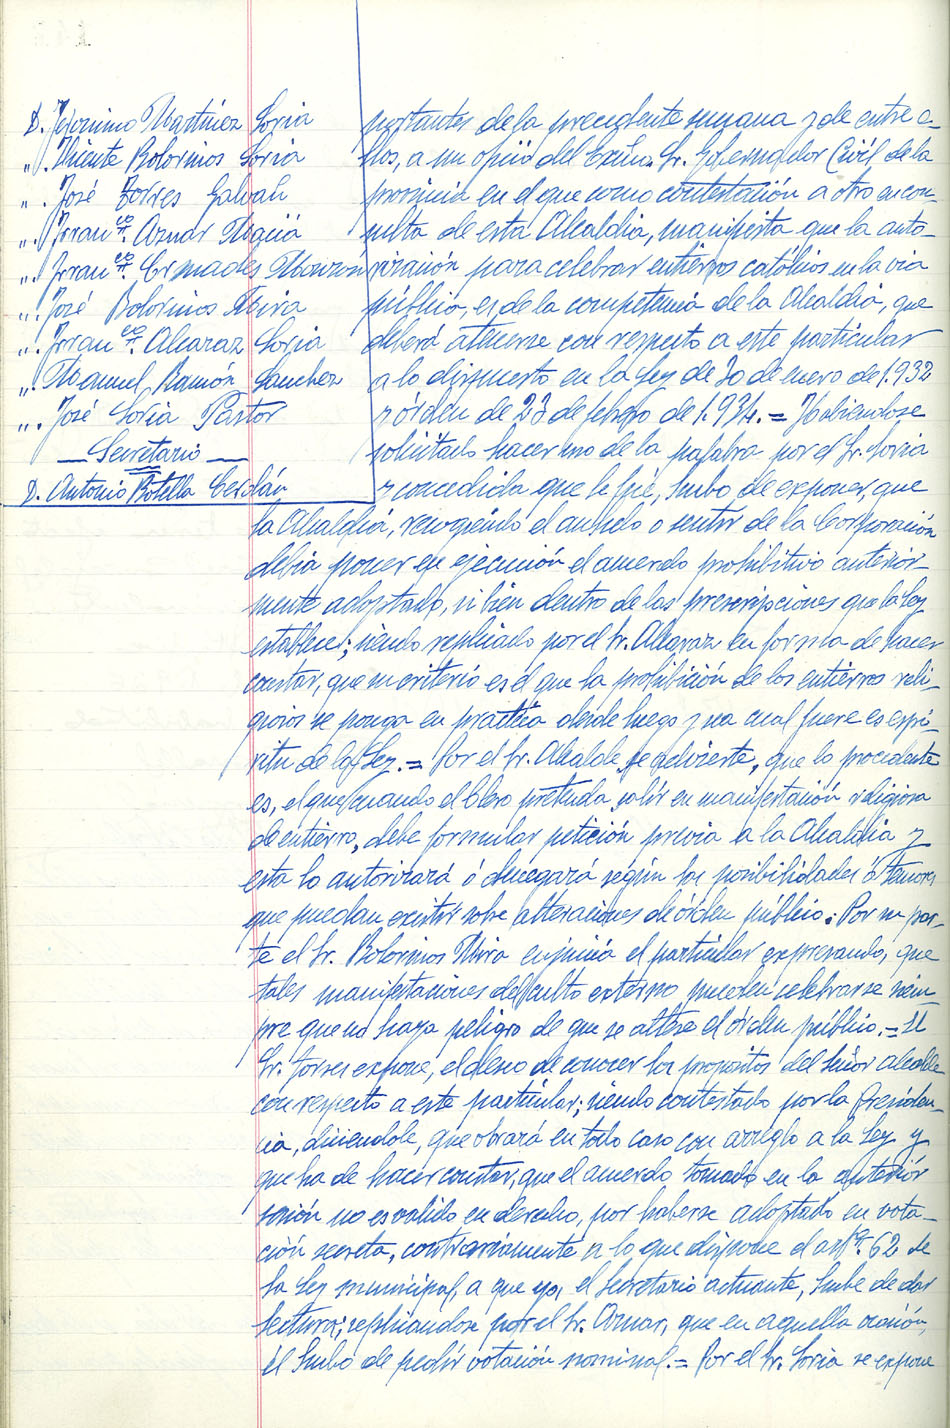 D. Jerónimo Martínez Soria
„. Vicente Bolorinos Soria
„. José Torres Galvañ
„. Franco. Aznar Maciá
„. Franco. Cremades Monzón
„. José Bolorinos Mira
„. Franco. Alcaraz Soria
„. Manuel Ramón Sanchez
„. José Soria Pastor
— Secretario —
D. Antonio Botella Cerdán
portantes de la precedente semana y de entre e-
llos, a un oficio del Excmo. Sr. Gobernador Civil de la
provincia en el que como contestación a otro en con-
sulta de esta Alcaldia, manifiesta que la auto-
rización para celebrar entierros católicos en la via
pública, es de la competencia de la Alcaldia, que
deberá atenerse con respecto a este particular
a lo dispuesto en la Ley de 30 de enero de 1.932
y órden de 23 de febrero de 1.934. = Habiendose
solicitado hacer uso de la palabra por el Sr. Soria
y concedida que le fué, hubo de exponer, que
la Alcaldia, recogiendo el anhelo o sentir de la Corporación
debia poner en ejecución el acuerdo prohibitivo anterior-
mente adoptado, si bien dentro de las prescripciones que la Ley
establece; siendo replicado por el Sr. Alcaraz en forma de hacer
constar, que su criterio es el que la prohibición de los entierros reli-
giosos se ponga en practica desde luego y sea cual fuere es espi-
ritu de la Ley. = Por el Sr. Alcalde se advierte, que lo procedente
es, el que cuando el Clero pretenda salir en manifestación religiosa
de entierro, debe formular petición previa a la Alcaldia y
esta lo autorizará ó denegará según las posibilidades ó temores
que puedan existir sobre alteraciones de órden público. Por su par-
te el Sr. Bolorinos Mira enjuicia el particular expresando, que
tales manifestaciones del culto externo pueden celebrarse siem-
pre que no haya peligro de que se altere el órden público. = El
Sr. Torres expone, el deseo de conocer los propositos del Señor alcalde
con respecto a este particular; siendo contestado por la Presiden-
cia, diciendole, que obrará en todo caso con arreglo a la Ley y
que ha de hacer constar, que el acuerdo tomado en la anterior
sesión no es valido en derecho, por haberse adoptado en vota-
ción secreta, contrariamente a lo que dispone el artº. 62 de
la Ley municipal, a que yo, el Secretario actuante, hube de dar
lectura; replicandose por el Sr. Aznar, que en aquella ocasión,
él hubo de pedir votación nominal. = Por el Sr. Soria se expone